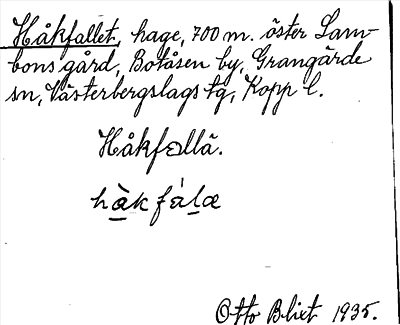 Håkfallet, hage, 700 m. öster Lam-
bons gård, Botåsen by, Grangärde
sn, Västerbergslags tg, Kopp l.
Håkfallä.
Otto Blixt 1935.